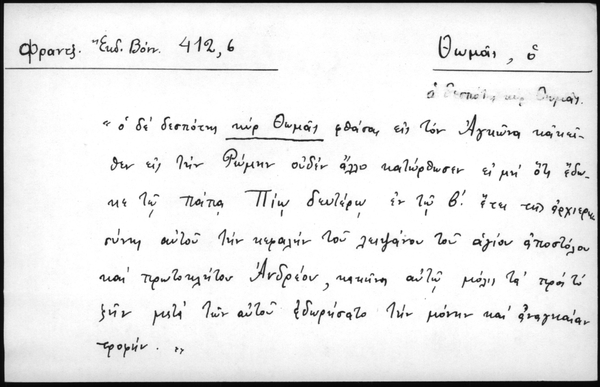 Φραντζ. Ἔκδ. Βόνν. 412,6
Θωμᾶς, ὁ
ὁ δεσπότης κὺρ Θωμᾶς.
" ὁ δέ δεσπότης κύρ Θωμᾶς φθάσας εἰς τόν Ἀγκῶνα κἀκεῖ-
θεν εἰς τήν Ῥώμην οὐδέν ἄλλο κατώρθωσεν εἰ μή ὅτι ἔδω-
κε τῷ πάπᾳ Πίῳ δευτέρῳ ἐν τῷ β.' ἔτει τῆς ἀρχιερω-
σύνης αὐτοῦ τήν κεφαλήν τοῦ λειψάνου τοῦ ἁγίου ἀποστόλου
καί πρωτοκλήτου Ἀνδρέου, κἀκεῖνος αὐτῷ μόλις τά πρός τό
ζῆν μετά τῶν αὐτοῦ ἐδωρήσατο τήν μόνην καί ἀναγκαίαν
τροφήν. "